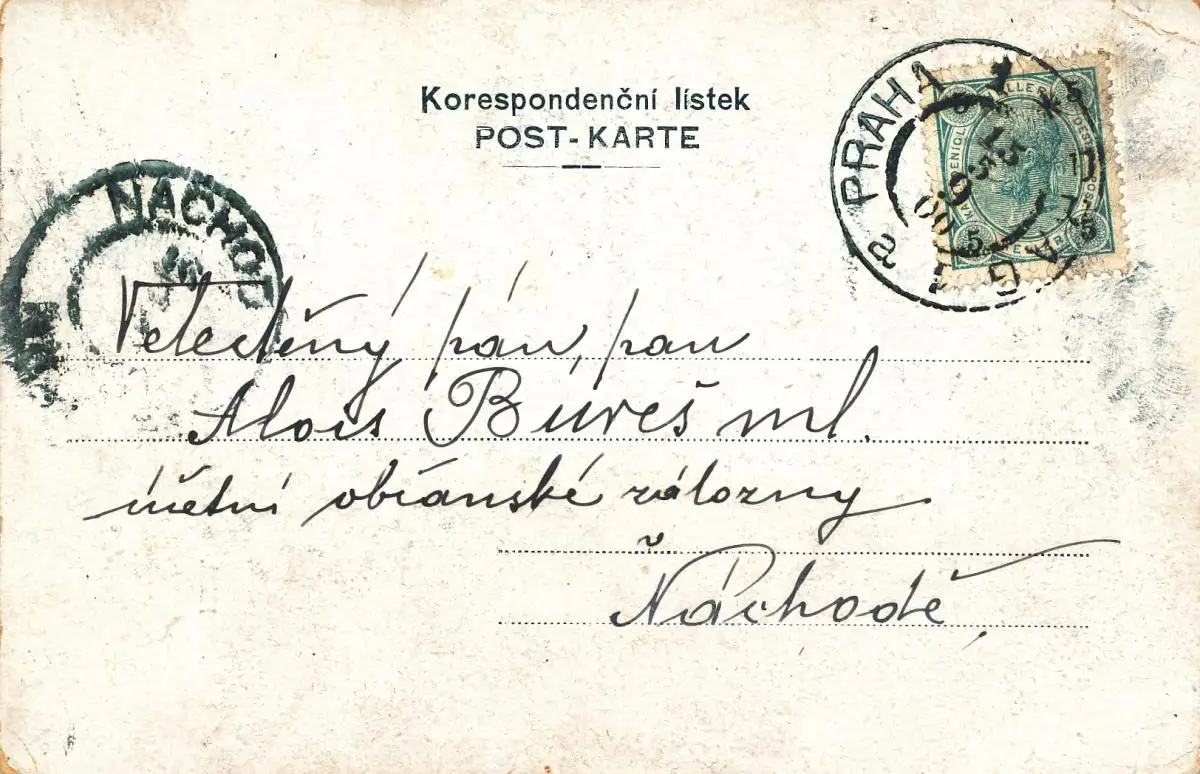 Korespondenční lístek
POST-KARTE
PRAHA
NÁCHOD
5 5
5 5
Veleděný pán, pan
Alois Bureš ml.
účetní občanské záložny
v
Náchodě